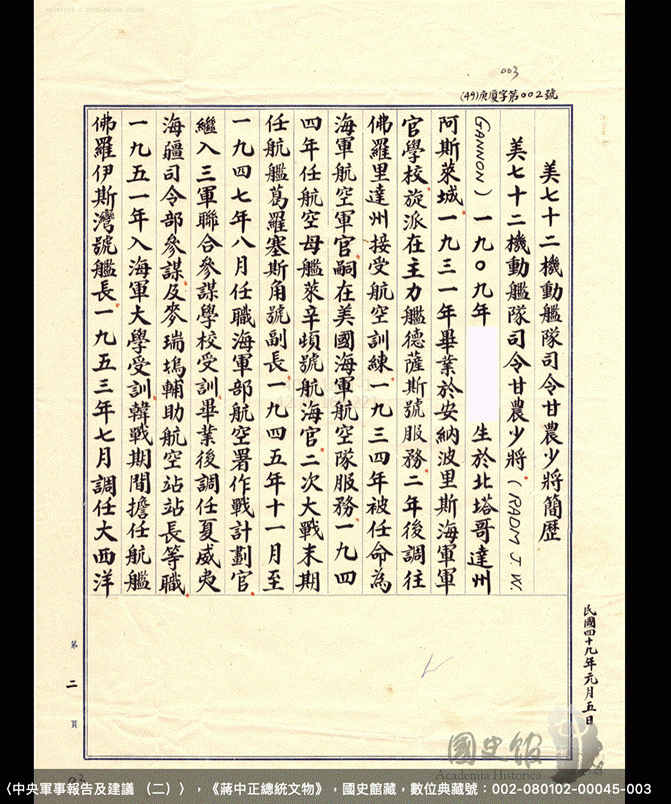 003
(49)庚廈字第002號
美七十二機動艦隊司令甘農少將簡歷
美七十二機動艦隊司令甘農少將(RADM J.W.
GANNON)一九○九年 生於北塔哥達州
阿斯萊城一九三一年畢業於安納波里斯海軍軍
官學校旋派在主力艦德薩斯號服務二年後調往
佛羅里達州接受航空訓練一九三四年被任命為
海軍航空軍官嗣在美國海軍航空隊服務一九四
四年任航空母艦萊辛頓號航海官二次大戰末期
任航艦葛羅塞斯角號副長一九四五年十一月至
一九四七年八月任職海軍部航空署作戰計劃官
繼入三軍聯合參謀學校受訓畢業後調任夏威夷
海疆司令部參謀及麥瑞塢輔助航空站站長等職
一九五一年入海軍大學受訓韓戰期間擔任航艦
佛羅伊斯灣號艦長一九五三年七月調任大西洋
民國四十九年元月五日
第二頁
國史館
Academia Historica
〈中央軍事報告及建議 （二）〉，《蔣中正總統文物》，國史館藏，數位典藏號：002-080102-00045-003